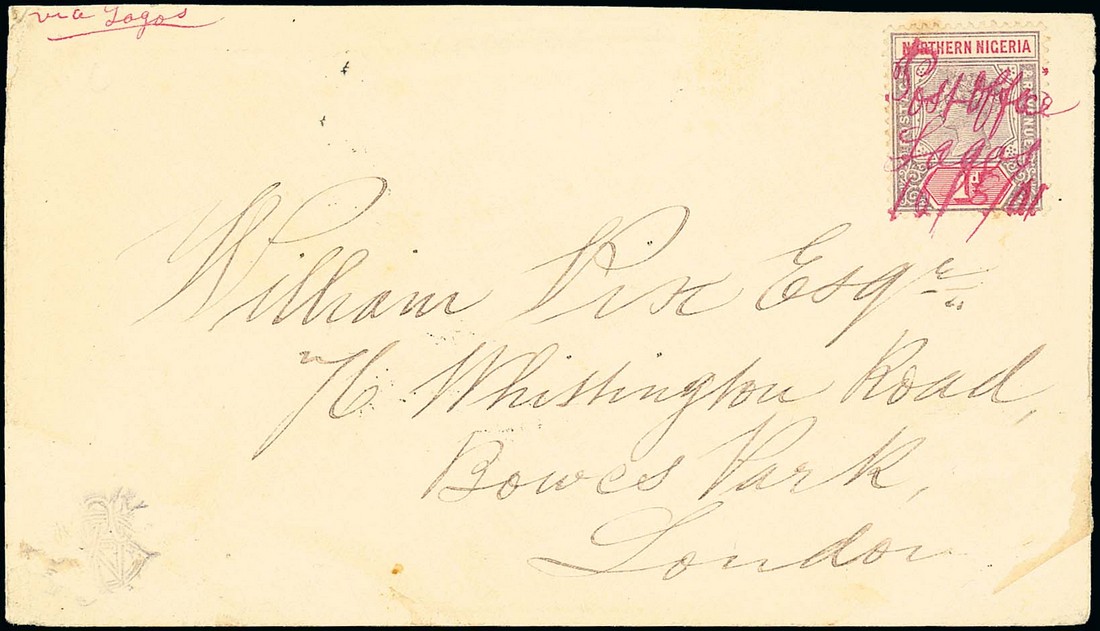 via Lagos
NORTHERN NIGERIA
POSTAGE
REVENUE
Post Office
Lagos
1d
William Pix Esqr
76 Whittington Road,
Bowes Park,
London